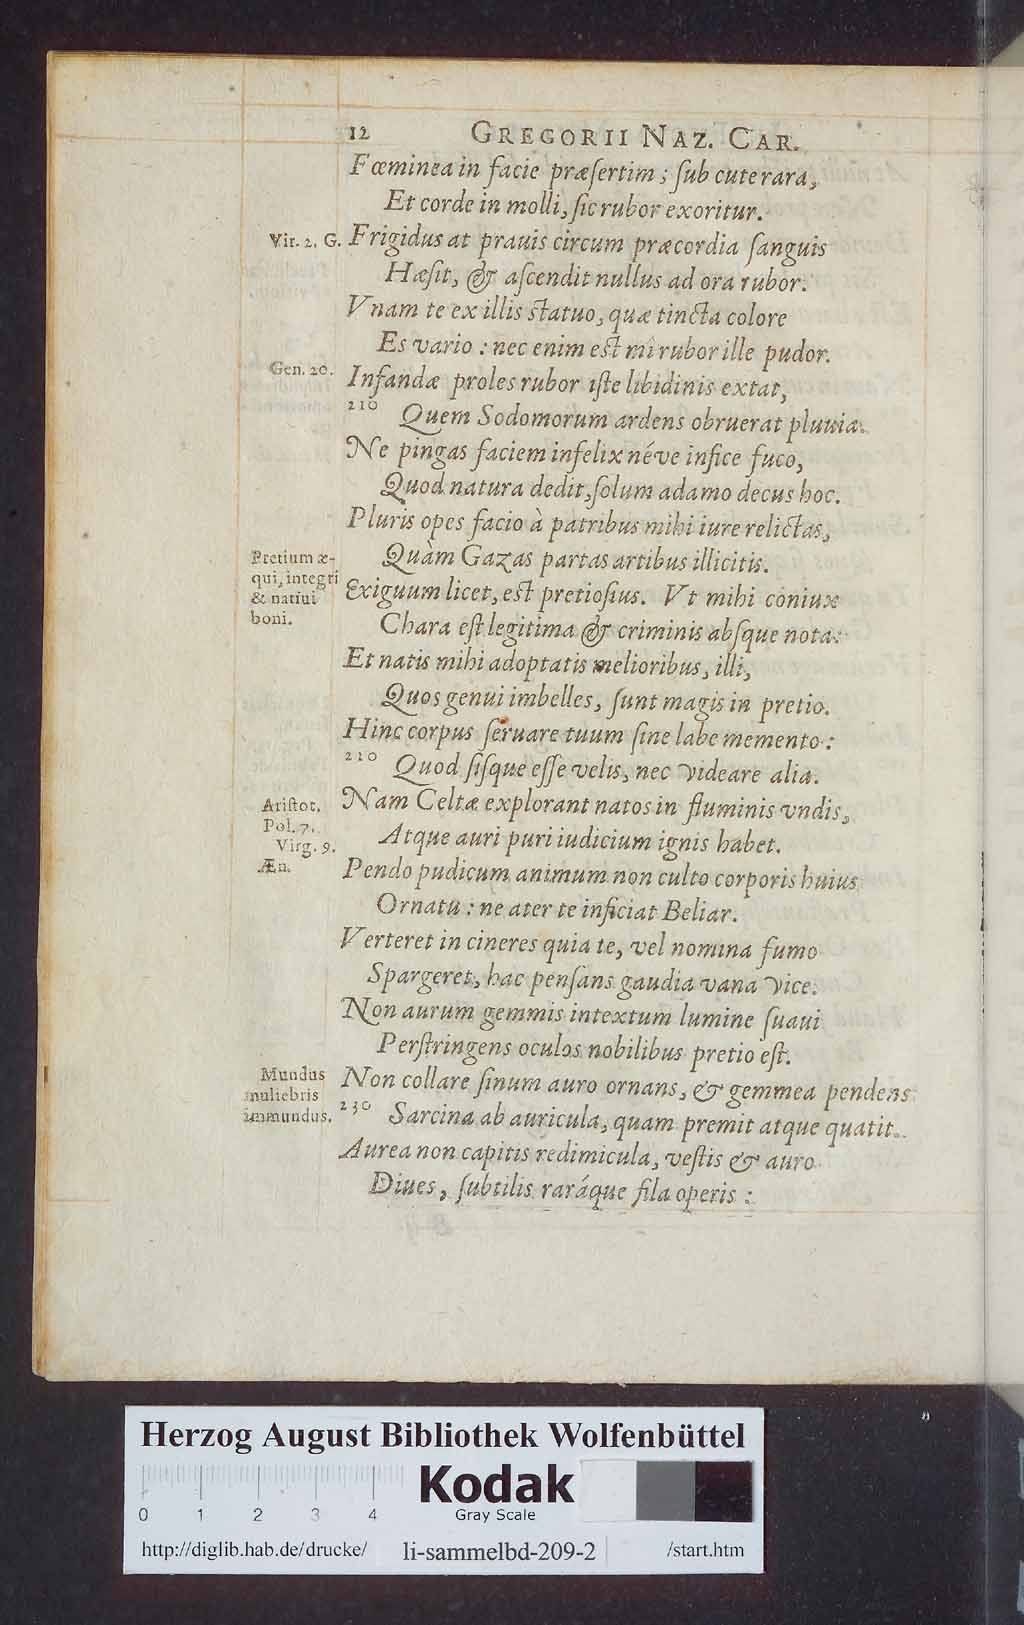 12 GREGORII NAZ. CAR.
Fœminea in facie præſertim; ſub cute rara,
Et corde in molli, ſic rubor exoritur.
Vir. 2. G. Frigidus at prauis circum præcordia ſanguis
Hæſit, & aſcendit nullus ad ora rubor.
Vnam te ex illis ſtatuo, quæ tincta colore
Es vario: nec enim eſt mî rubor ille pudor.
Gen. 20. Infandæ proles rubor iſte libidinis extat,
210 Quem Sodomorum ardens obruerat pluuia.
Ne pingas faciem infelix néve infice fuco,
Quod natura dedit, ſolum adamo decus hoc.
Pluris opes facio à patribus mihi iure relictas,
Pretium æ- Quàm Gazas partas artibus illicitis.
qui, integri
& natiui Exiguum licet, eſt pretioſius. Vt mihi coniux
boni. Chara eſt legitima & criminis abſque nota:
Et natis mihi adoptatis melioribus, illi,
Quos genui imbelles, ſunt magis in pretio.
Hinc corpus ſeruare tuum ſine labe memento:
210 Quod ſiſque eſſe velis, nec videare alia.
Ariſtot. Nam Celtæ explorant natos in fluminis vndis,
Pol. 7. Atque auri puri iudicium ignis habet.
Virg. 9.
Æn. Pendo pudicum animum non culto corporis huius
Ornatu: ne ater te inficiat Beliar.
Verteret in cineres quia te, vel nomina fumo
Spargeret, hac penſans gaudia vana vice.
Non aurum gemmis intextum lumine ſuaui
Perſtringens oculos nobilibus pretio eſt.
Mundus Non collare ſinum auro ornans, & gemmea pendens
muliebris
immundus. 230 Sarcina ab auricula, quam premit atque quatit.
Aurea non capitis redimicula, veſtis & auro
Diues, ſubtilis raráque fila operis:
Herzog August Bibliothek Wolfenbüttel
Kodak
Gray Scale
0 1 2 3 4
http://diglib.hab.de/drucke/ li-sammelbd-209-2 /start.htm